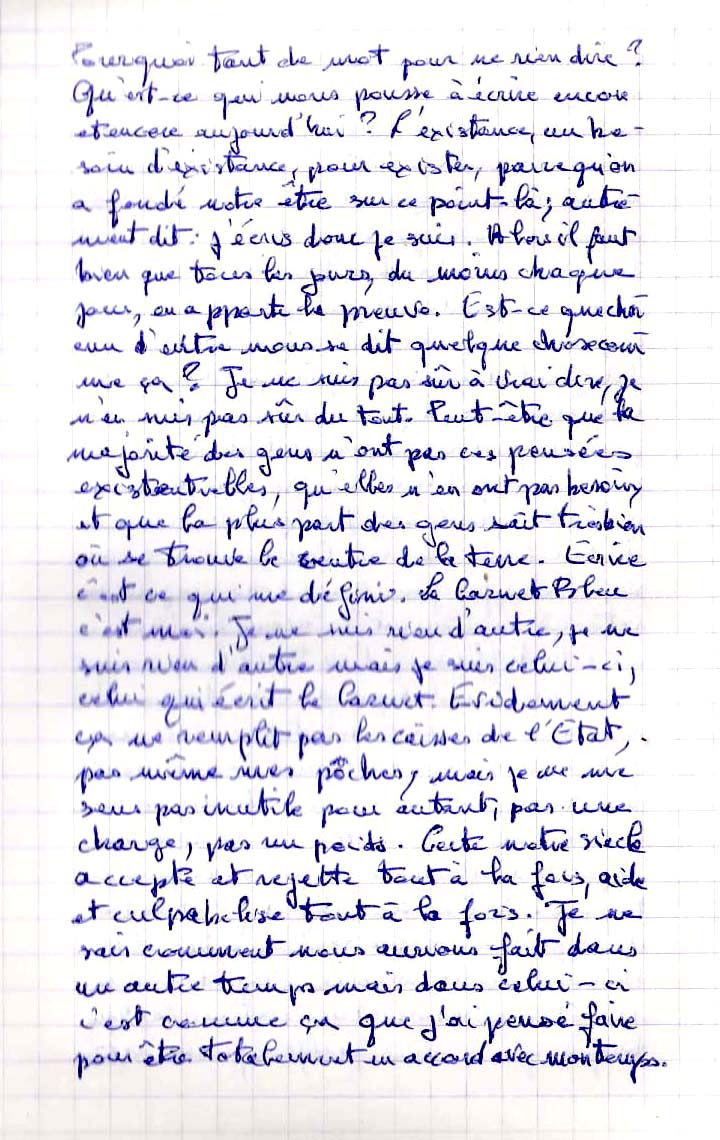 Pourquoi tant de mot pour ne rien dire ?
Qu'est-ce qui nous pousse à écrire encore
et encore aujourd'hui ? L'existance, un be-
soin d'existance, pour exister, parcequ'on
a fondé notre être sur ce point-là ; autre
ment dit : j'écris donc je suis. Alors il faut
bien que tous les jours, du moins chaque
jour, on apporte la preuve. Est-ce que chac
cun d'entre nous se dit quelque chose com
me ça ? Je ne suis pas sûr à vrai dire, je
n'en suis pas sûr du tout. Peut-être que la
majorité des gens n'ont pas ces pensées
existentielles, qu'elles n'en ont pas besoin,
et que la plus part des gens sait très bien
où se trouve le centre de la terre. Ecrire
c'est ce qui me défini. Le Carnet Bleu
c'est moi. Je ne suis rien d'autre, je ne
suis rien d'autre mais je suis celui-ci,
celui qui écrit le Carnet. Evidement
ça ne remplit pas les caisses de l'Etat,
pas même mes pôches, mais je ne me
sens pas inutile pour autant, pas une
charge, pas un poids. Certe notre siècle
accepte et rejette tout à la fois, aide
et culpabilise tout à la fois. Je ne
sais comment nous aurions fait dans
un autre temps mais dans celui-ci
c'est comme ça que j'ai pensé faire
pour être totalement en accord avec mon temps.